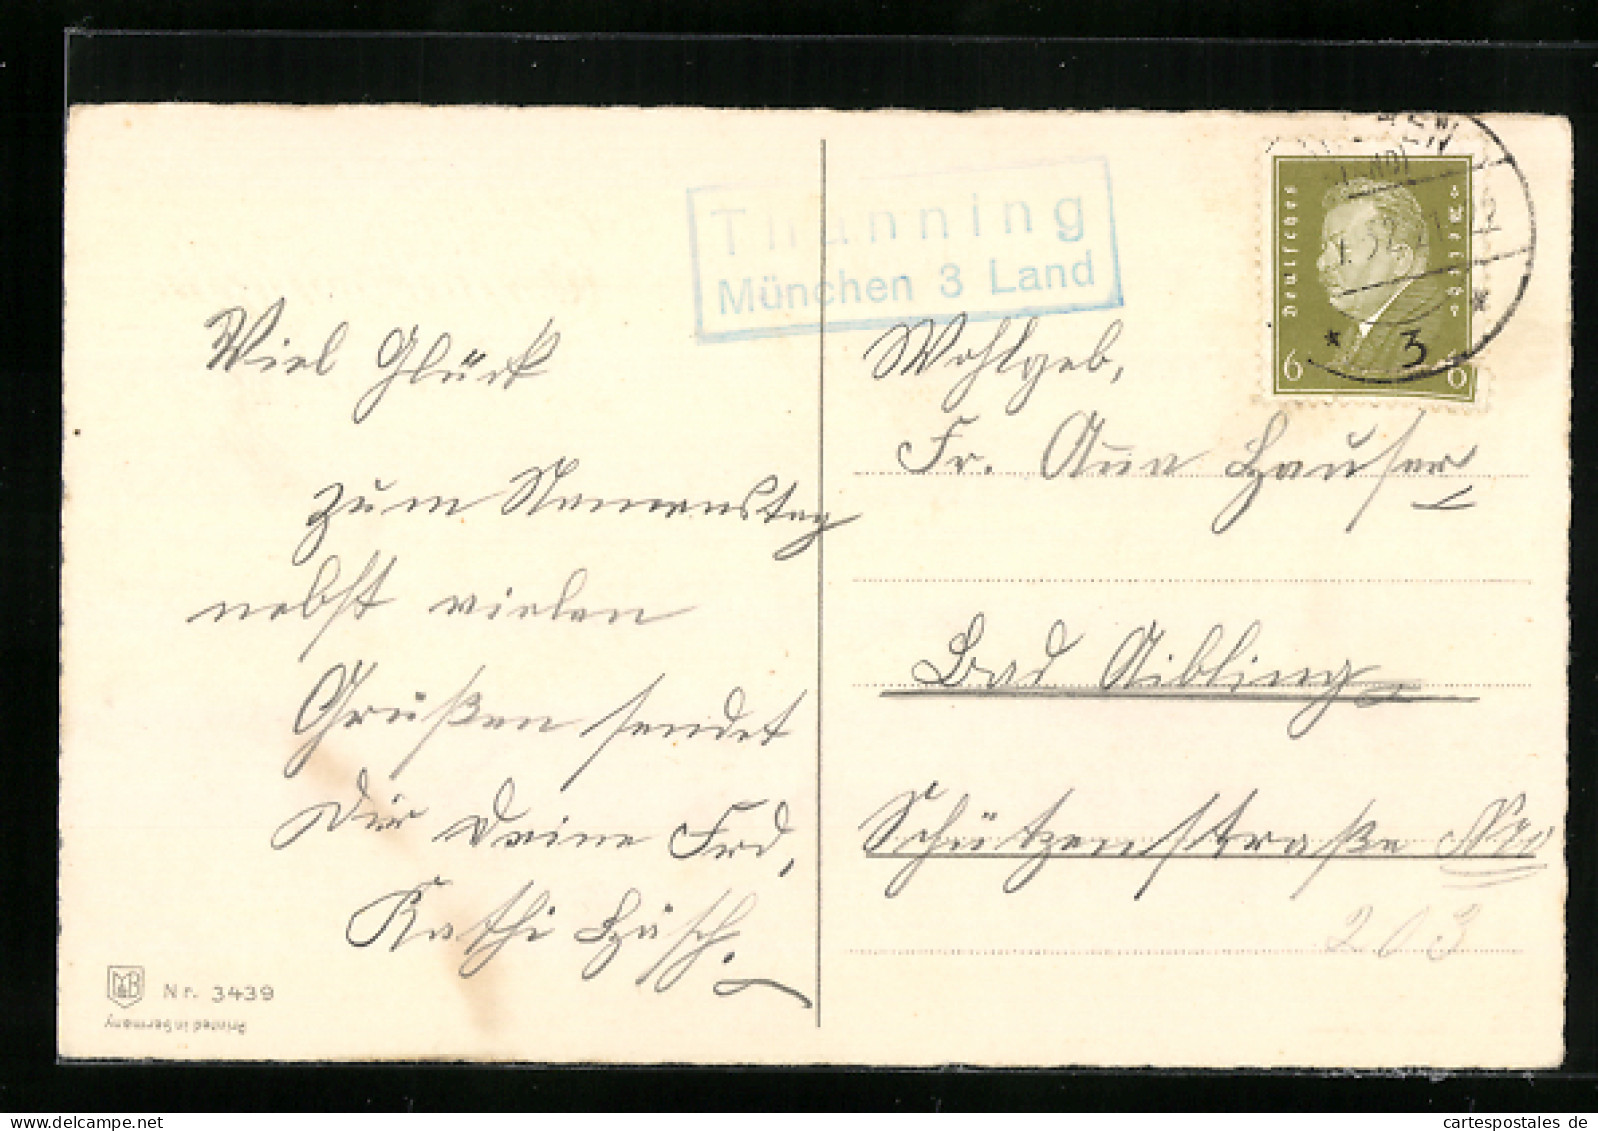 Thanning
München 3 Land
Viel Glück
zum Namenstag
nebst vielen
Grüßen sendet
Dir Deine Frd,
Kathi
Nr. 3439
Printed in Germany
Wohlgeb,
Fr. Anna Hauser
Bad Aibling
Schützenstraße
203
Deutsches Reich
6 6
32
3
cartespostales.de